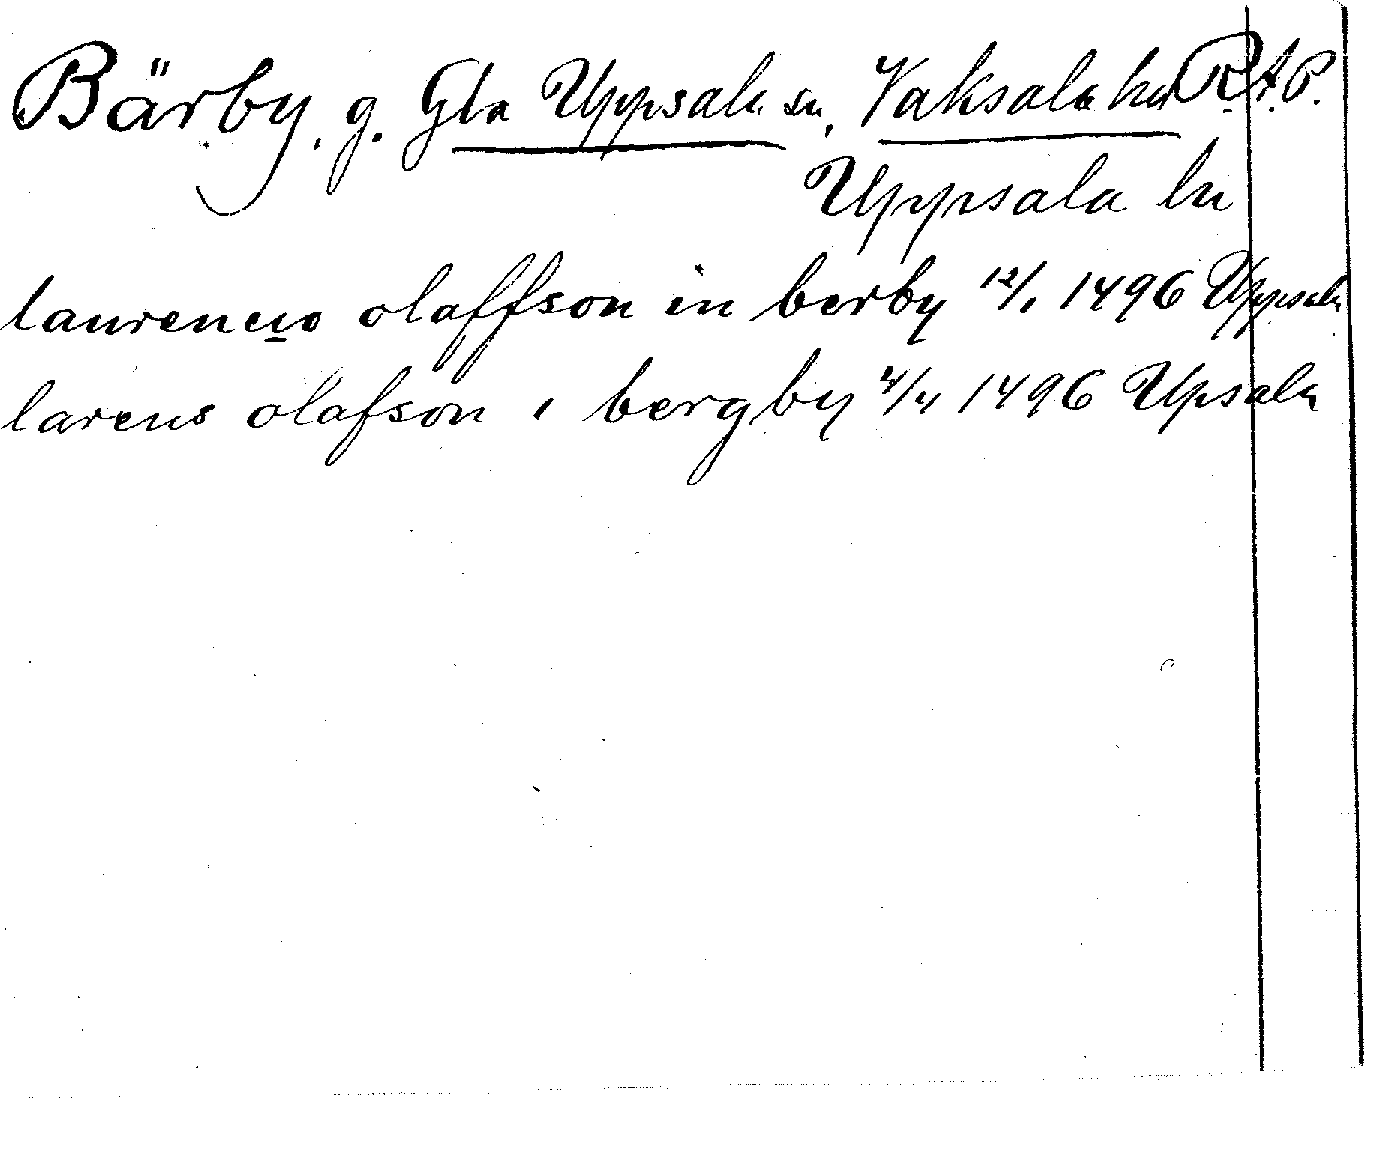 Bärby, g. Gla Uppsala sn, Vaksala hd R.A.P.
Uppsala ln
laurencio olaffson in berby 12/1 1496 Uppsala
larens olafson i bergby 4/4 1496 Upsala